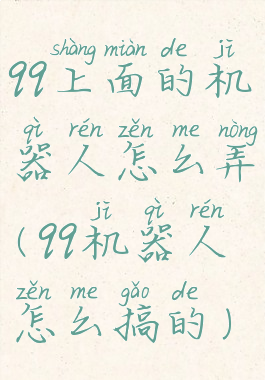 shàng miàn de jī
99上面的机
qì rén zěn me nòng
器人怎么弄
jī qì rén
(99机器人
zěn me gǎo de
怎么搞的)